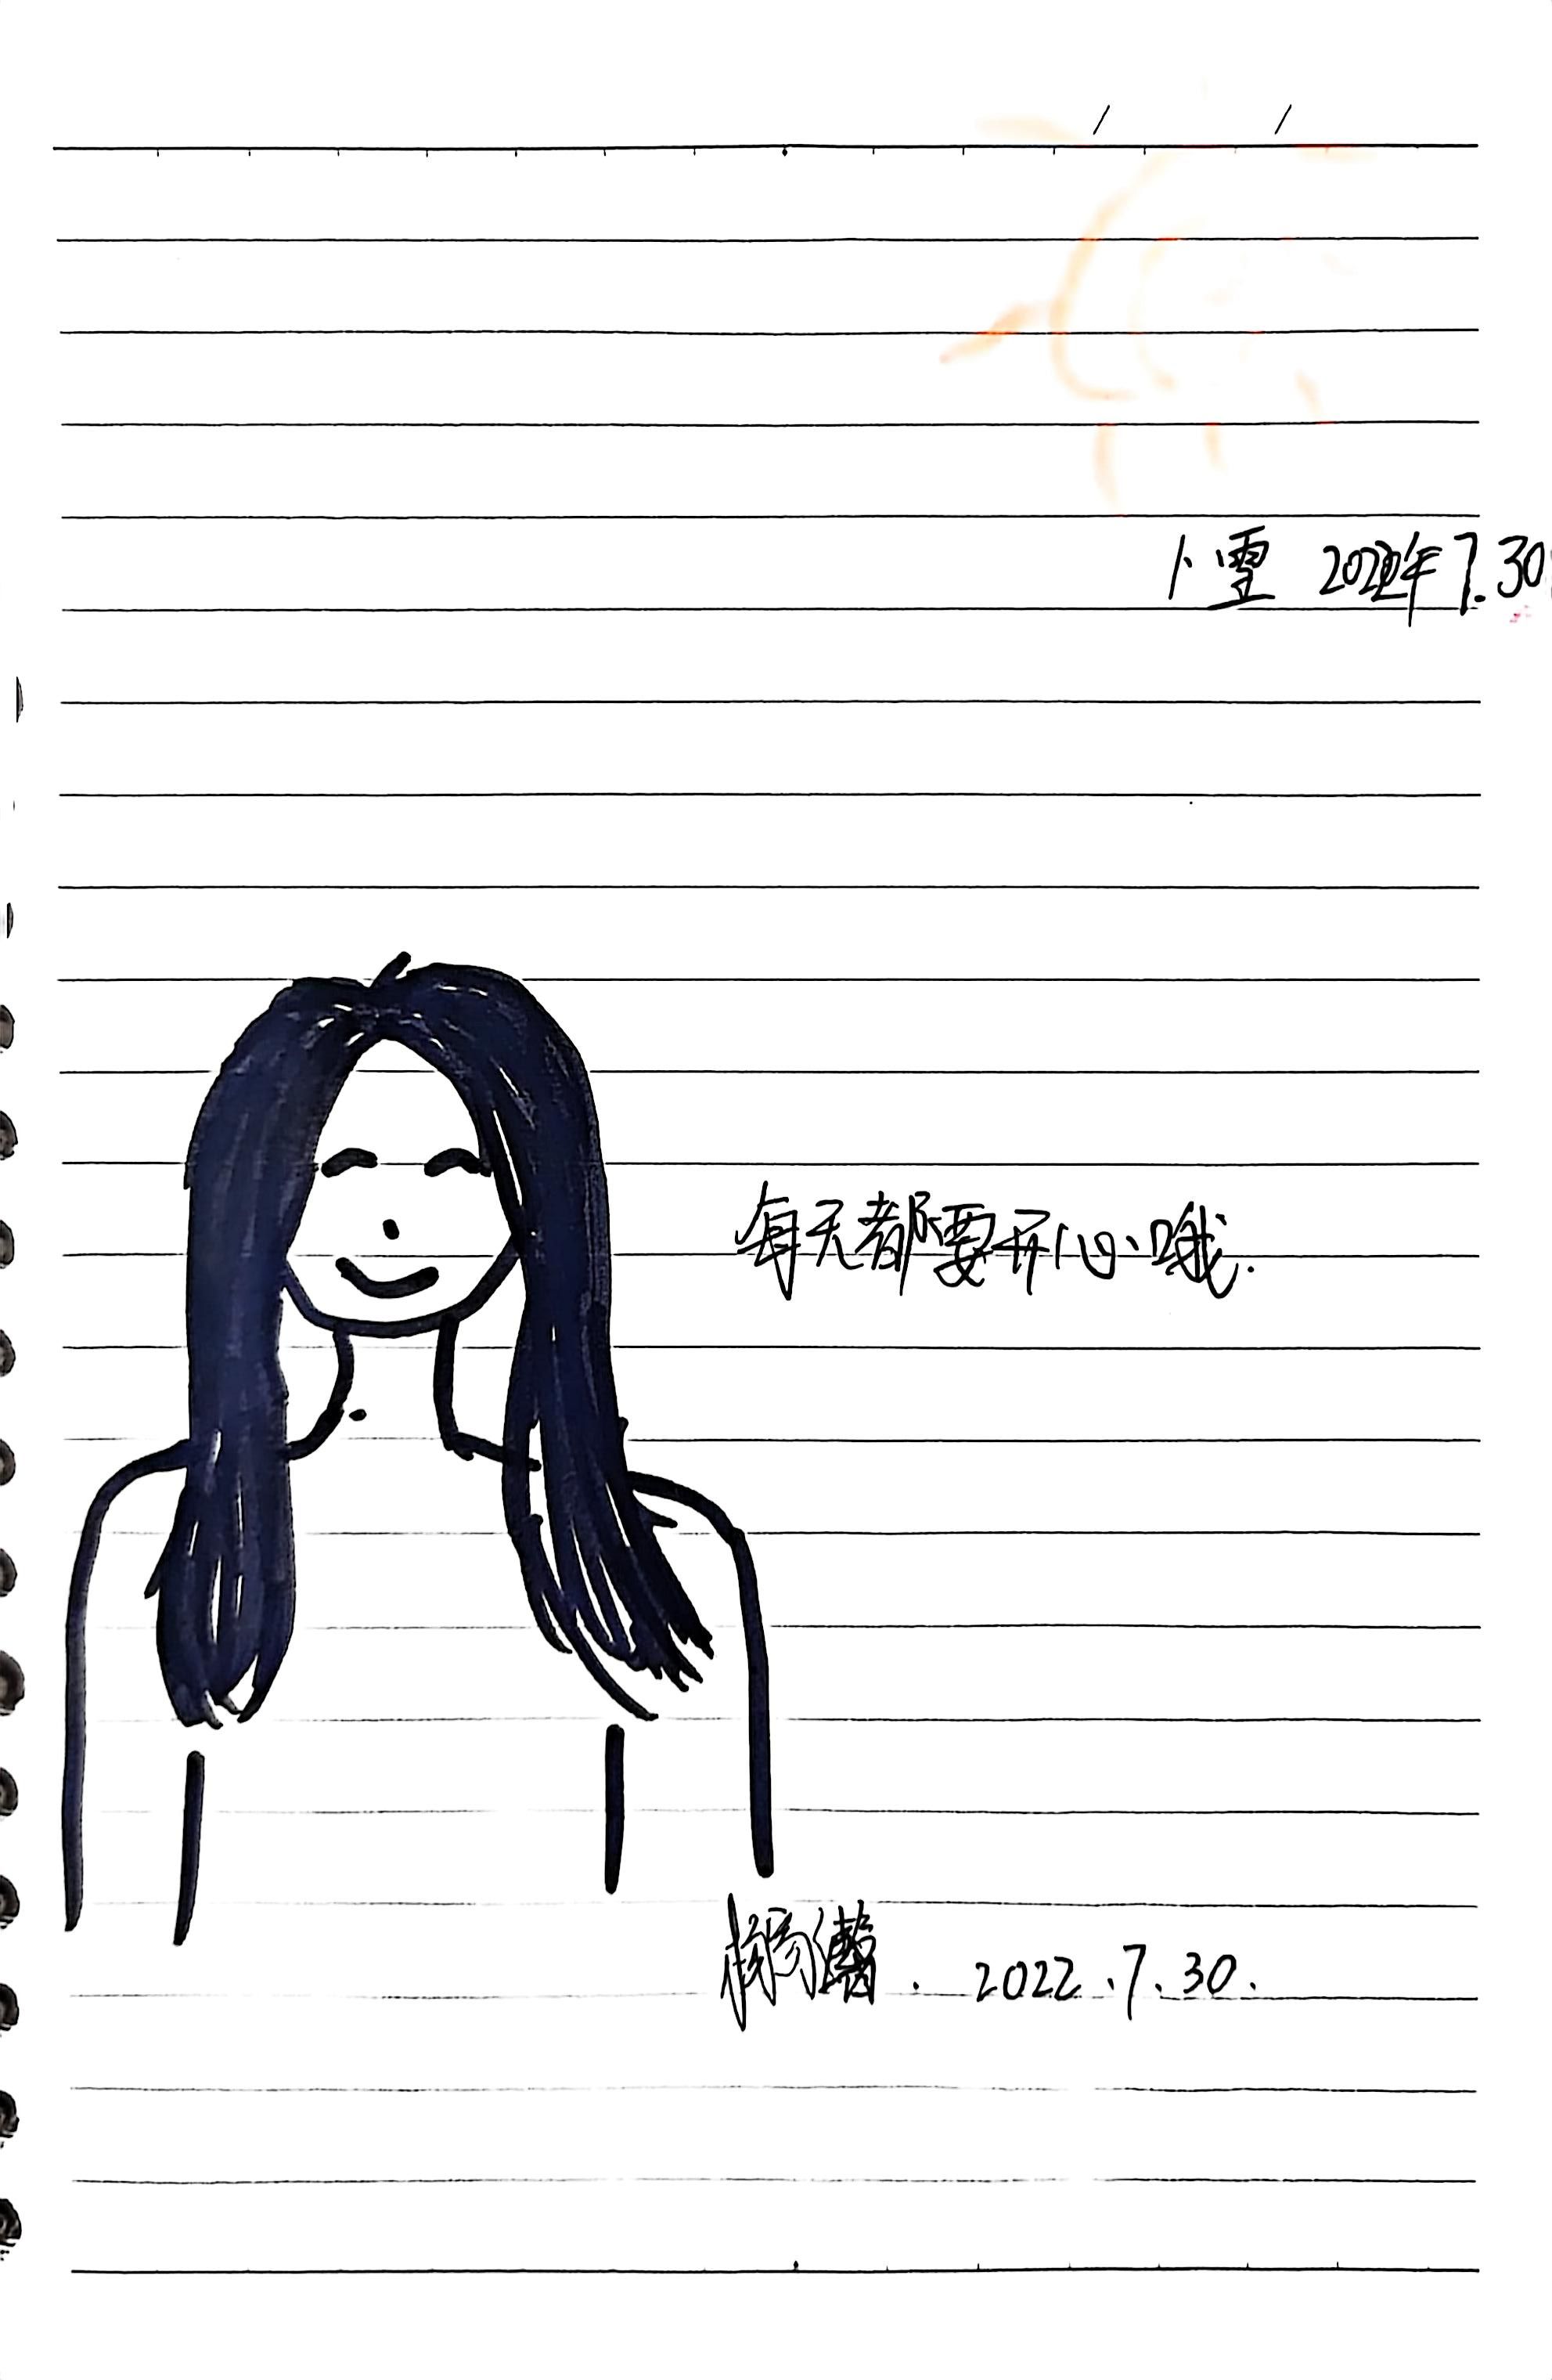 卜雪 2022年7.30
每天都要开心哦.
2022.7.30.